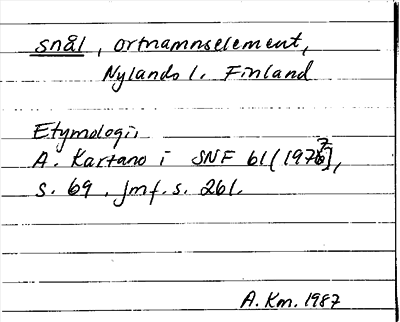 snål, ortnamnselement,
Nylands l. Finland
Etymologi,
A. Kartano i SNF 61 (1977],
s. 69, jmf. s. 261.
A. Km. 1987